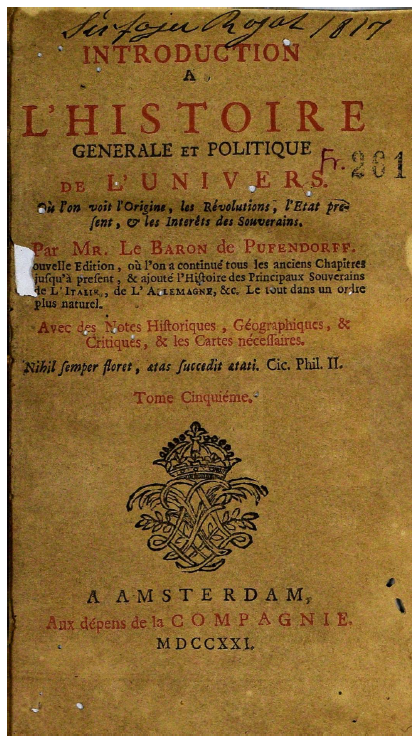 1817
INTRODUCTION
A
L'HISTOIRE
GENERALE ET POLITIQUE
Fr. 261
DE L'UNIVERS.
Où l'on voit l'Origine, les Révolutions, l'Etat pré-
sent, & les Interêts des Souverains.
Par MR. LE BARON de PUFENDORFF.
ouvelle Edition, où l'on a continué tous les anciens Chapitres
jusqu'à present, & ajouté l'Histoire des Principaux Souverains
de L'ITALIE, de L'ALLEMAGNE, &c. Le tout dans un ordre
plus naturel.
Avec des Notes Historiques, Géographiques, &
Critiques, & les Cartes nécessaires.
Nihil semper floret, ætas succedit ætati. Cic. Phil. II.
Tome Cinquiéme.
A AMSTERDAM,
Aux dépens de la COMPAGNIE.
MDCCXXI.